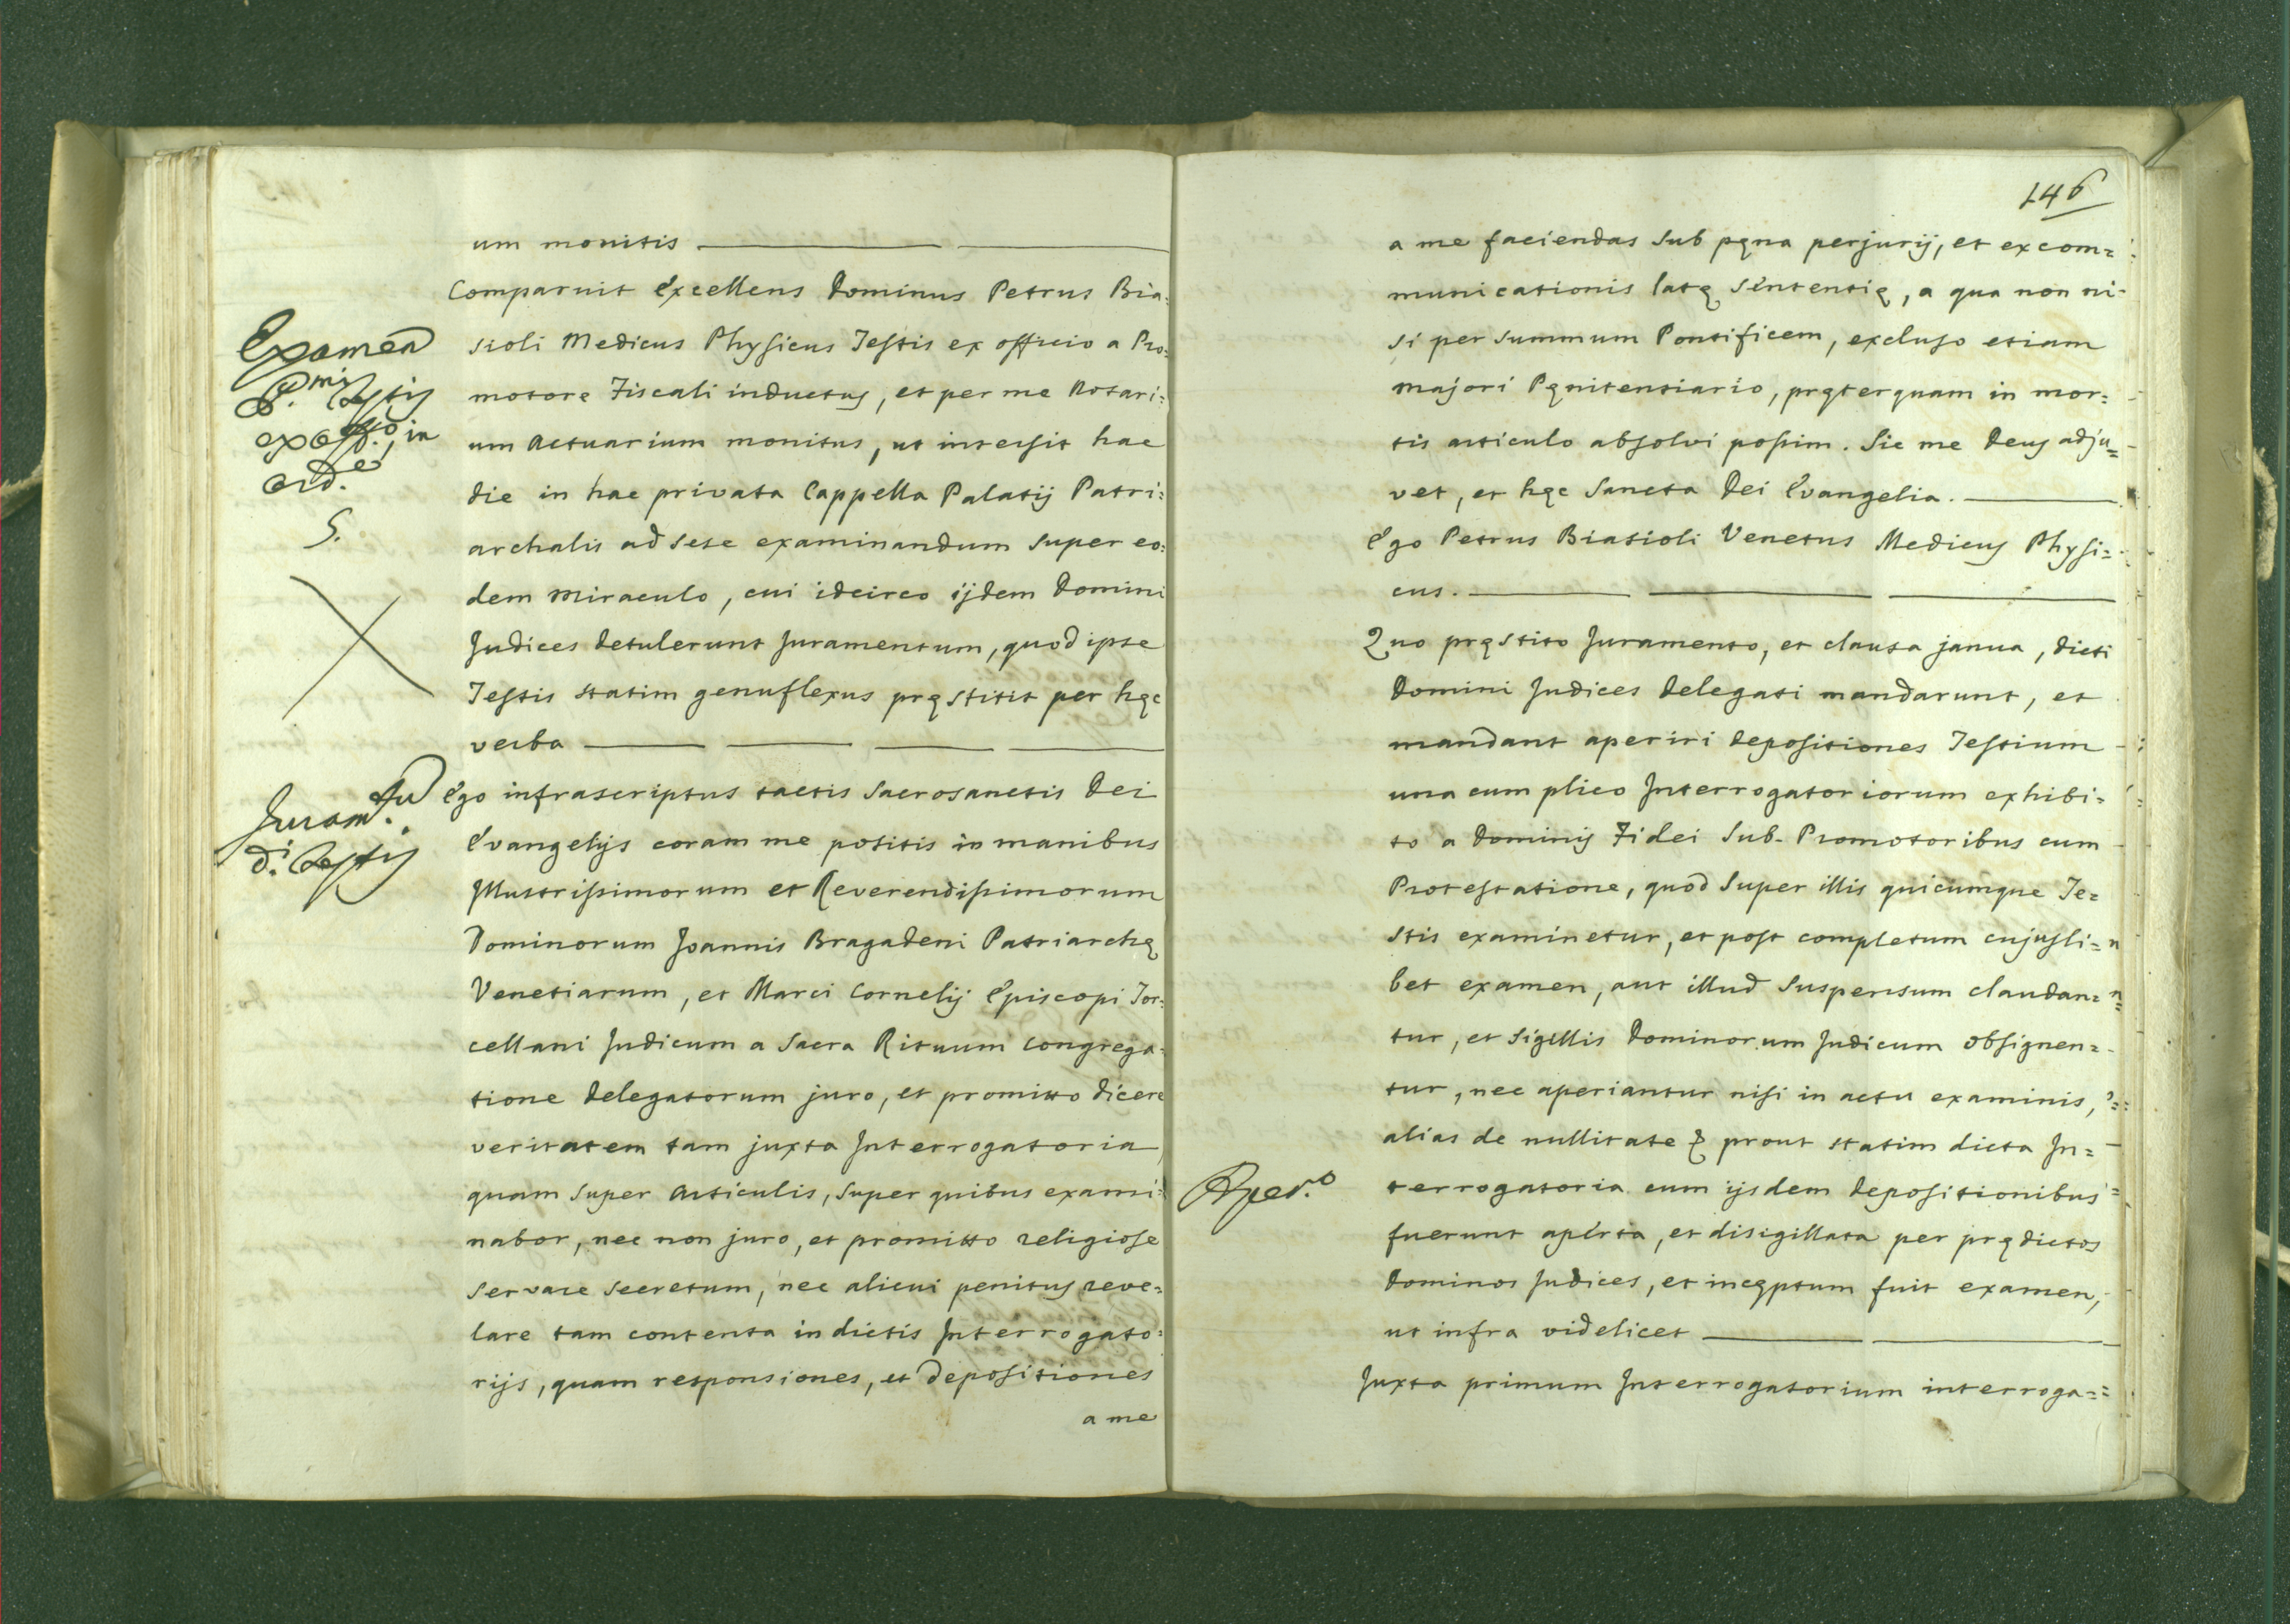 um monitis
Comparuit Excellens Dominus Petrus Bia=
sioli Medicus Physicus Testis ex officio a Pro=
motore Fiscali inductus, et per me Notari=
um Actuarium monitus, ut intersit hac
die in hac privata Cappella Palatij Patri=
archalis ad sese examinandum super eo=
dem Miraculo, cui idcirco ijdem Domini
Judices detulerunt Juramentum, quod ipse
Testis statim genuflexus pręstitit per hęc
verba
Ego infrascriptus tactis Sacrosanctis Dei
Evangelijs coram me positis in manibus
Illustrissimorum et Reverendissimorum
Dominorum Joannis Bragadeni Patriarchę
Venetiarum, et Marci Cornelij Episcopi Tor=
cellani Judicum a Sacra Rituum Congrega=
tione Delegatorum juro, et promitto dicere
veritatem tam juxta Interrogatoria,
quam super Articulis, super quibus exami=
nabor, nec non juro, et promitto religiose
servare secretum, nec alicui penitus reve=
lare tam contenta in dictis Interrogato=
rijs, quam responsiones, et depositiones
a me
Examen
P.mi Testis
ex off.o, in
ord.e
5.
Juram.tu
d.i Testis
146
a me faciendas sub pęna perjurij, et excom=
municationis latę sententię, a qua non ni=
si per Summum Pontificem, excluso etiam
Majori Pęnitentiario, pręterquam in mor=
tis articulo absolvi possim. Sic me Deus adju=
vet, et hęc Sancta Dei Evangelia.
Ego Petrus Biasioli Venetus Medicus Physi=
cus.
Quo pręstito Juramento, et clausa janua, dicti
Domini Judices Delegati mandarunt, et
mandant aperiri depositiones Testium
una cum plico Interrogatoriorum exhibi=
to a Dominis Fidei Sub-Promotoribus cum
Protestatione, quod super illis quicumque Te=
stis examinetur, et post completum cujusli=
bet examen, aut illud suspensum claudan=
tur, et sigillis Dominorum Judicum obsignen=
tur, nec aperiantur nisi in actu examinis,
alias de nullitate & prout statim dicta In=
terrogatoria cum ijsdem depositionibus
fuerunt aperta, et disigillata per prędictos
Dominos Judices, et incęptum fuit examen,
ut infra videlicet
Juxta primum Interrogatorium interroga=
Aper.o